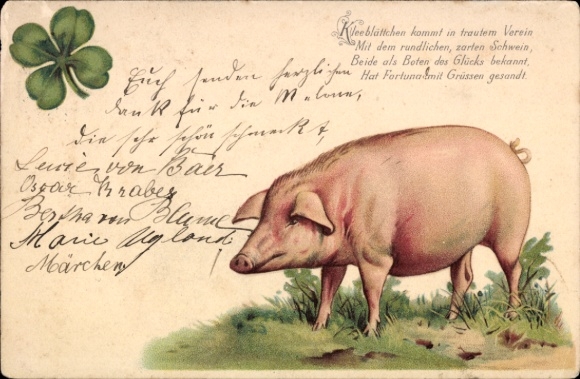 Kleeblättchen kommt in trautem Verein
Mit dem rundlichen, zarten Schwein,
Beide als Boten des Glücks bekannt,
Hat Fortuna mit Grüssen gesandt.
Euch senden herzlichen
dank für die Melone,
die sehr schön schmeckt,
von Baer
Oscar Kraber
Bertha von Blume
Marie
Märchen